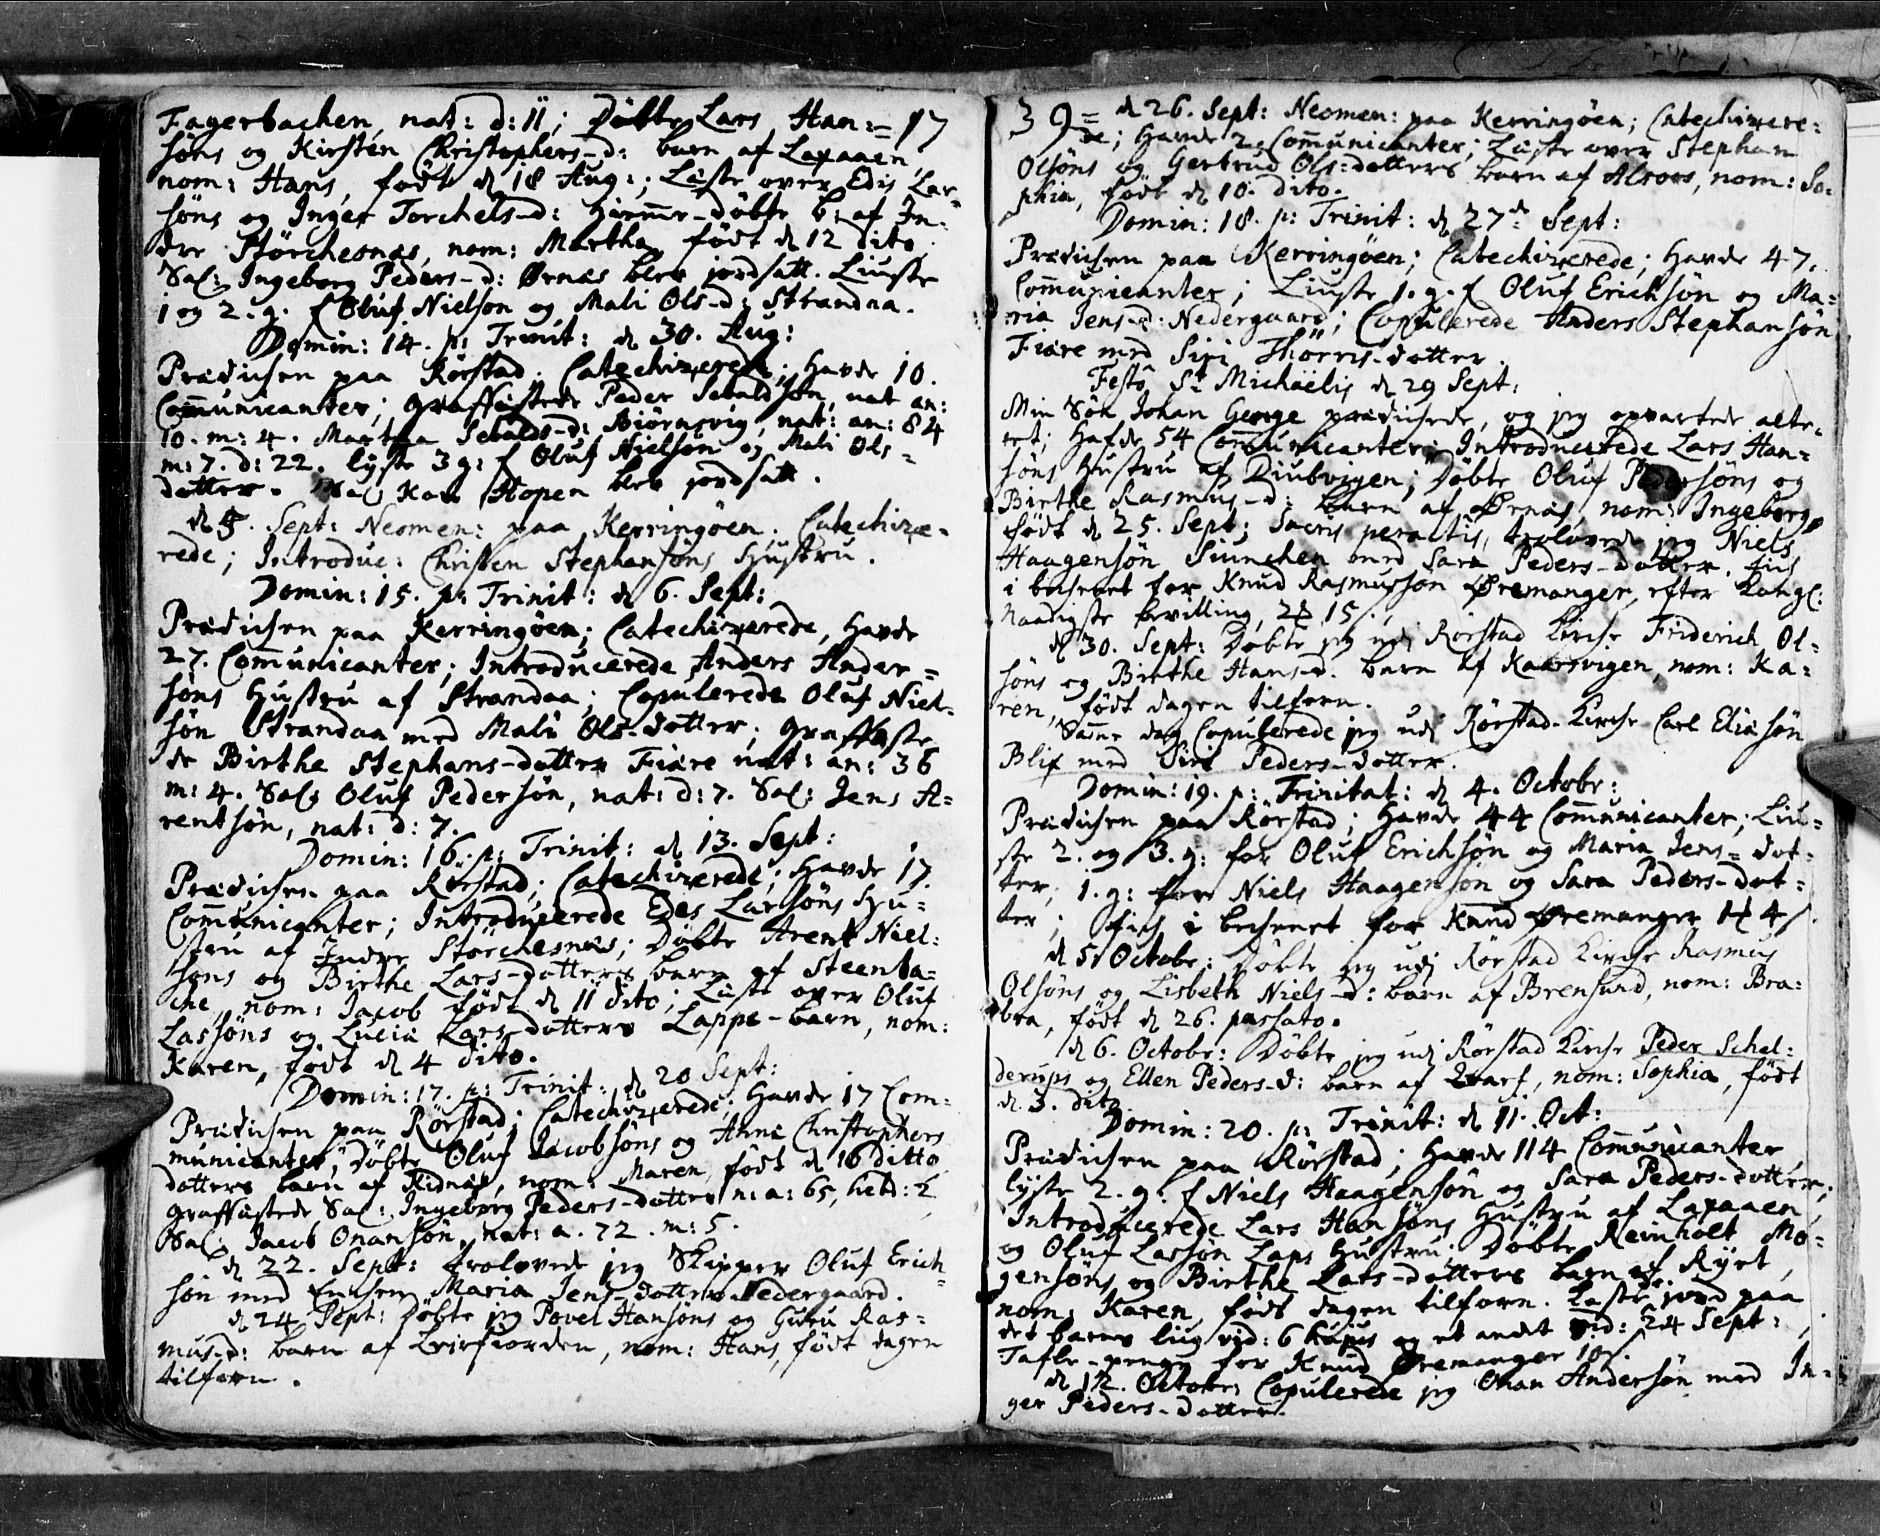 Fagerbachen, nat: d: 11; Döbte Lars Han:= 17
söns og Kirsten Christophers-d: barn af Laxaaen,
nom: Hans, födt d 18 Aug:; Läste over Edis Lar-
söns og Inger Torchels-d: hiemme-döbte b: af In-
dre Störchesnæs, nom: Martha, födt d 12 dito.
Sal: Ingeborg Peders-d: Ørnæs blev jordsatt. Liuste
1 og 2. g. f Oluf Nielsøn og Mali Ols-d: Strandaa.
Domin: 14. p: Trinit: d 30. Aug:
Prædichen paa Rörstad; Catechizerede; Havde 10.
Communicanter; Graffästede Peder Sebaldsön, nat an:
10. m: 4. Martha Sebalds-d: Biörnsvig, nat: an: 84
m: 7. d: 22. lyste 3 g: f Oluf Nielsøn og Mali Ols=
datter. Sal: Kari Hopen blev jordsatt.
d 5. Sept: Neomen: paa Kerringöen. Catechize-
rede; Introduc: Christen Stephansöns Hustru.
Domin: 15. p: Trinit: d 6. Sept:
Prædichen paa Kerringöen; Catechizerede, Havde
27. Communicanter; Introducerede Anders Ander=
söns Hustru af Strandaa; Copulerede Oluf Niel-
sön Strandaa med Mali Ols-datter; Graffäste
de Birthe Stephans-datter Fiære nat: an: 36
m: 4. Sal: Oluf Pedersön, nat: d: 7. Sal: Jens A=
rentsön, nat: d: 7.
Domin: 16. p: Trinit: d 13. Sept:
Prædichen paa Rörstad; Catechizerede; Havde 17.
Communicanter; Introducerede Edes Larsöns Hu-
stru af Indre Störchesnæs; Döbte Arent Niel:
söns og Birthe Lars-datters barn af Steenba=
che, nom: Jacob födt d 11 dito; Läste over Oluf
Lassöns og Lucia Lars-datters Lappe-barn, nom:
Karen, födt d 4 dito.
Domin: 17. p: Trinit: d 20 Sept:
Prædichen paa Rörstad; Catechizerede; Havde 17 Com-
municanter; Döbte Oluf Jacobsöns og Anne Christophers
datters barn af Ridnæs, nom: Maren, födt d 16 ditto
Graffästede Sal: Ingeborg Peders-datter n: a: 65, hebd: 2
Sal: Jacob Onansön, nat: a. 72. m: 5.
d 22. Sept: trolovede jeg Skipper Oluf Erich-
sön med Enchen Maria Jens-datter Nedergaard.
d 24 Sept: Döbte jeg Povel Hansöns og Guru Ras=
mus-d: barn af Leirfiorden, nom: Hans, födt dagen
tilforn.
39= d 26. Sept: Neomen: paa Kerringöen; Catechizere=
de; Havde 2 Communicanter; Läste over Stephan
Olsöns og Gertrud Ols-datters barn af Alsoos, nom: So-
phia, födt d 10. dito.
Domin: 18. p: Trinit: d 27de Sept:
Prædichen paa Kerringöen; Catechizerede; Havde 47.
Communicanter; Liuste 1. g. f Oluf Erichsön og Ma=
ria Jens-d: Nedergaard; Copulerede Anders Stephansön
Fiære med Siri Thörris-datter.
Festô St Michaëlis d 29 Sept:
Min Sön Johan George prædichede, og jeg opvartede alte-
ret; Hafde 54 Communicanter; Introducerede Lars Han=
söns Hustru af Diubvigen; Döbte Oluf Pedersöns og
Birthe Rasmus-d: barn af Ørnæs, nom: Ingeborg,
födt d 25. Sept: Sacris peractis, trolovede jeg Niels
Haagensön Siunchen med Sara Peders-datter. fich
i bechenet for Knud Rasmussön Øremanger, efter Kongl:
Naadigste bevilling, 15
d 30. Sept: Döbte jeg udi Rörstad Kirche Friderich Ol-
söns og Birthe Hans-d. barn af Kaarsvigen, nom: Ka-
ren, födt dagen tilforn.
Samme dag Copulerede jeg udi Rörstad-Kirche Carl Eliasön
Blix med Siri Peders-datter.
Domin: 19. p: Trinitat: d 4. Octobr:
Prædichen paa Rörstad; Havde 44 Communicanter; Liu-
ste 2. og 3. g: for Oluf Erichsön og Maria Jens=dot-
ter; 1. g: for Niels Haagensön og Sara Peders-dat-
ter; fich i bechenet for Knud Øremanger
d 5. Octobr: Döbte jeg udi Rörstad Kirche Rasmus
Olsöns og Lisbeth Niels-d: barn af Brensund, nom: Bra:
bra, födt d 26. passato.
d 6. Octobr: Döbte jeg udi Rörstad Kirche Peder Schel:
derups og Ellen Peders-d: barn af Evars, nom: Sophia, födt
d. 3. dito
Domin: 20. p: Trinit: d 11. Oct:
Prædichen paa Rörstad; Havde 114 Communicanter
lyste 2. g. f Niels Haagensön og Sara Peders-datter;
Introducerede Lars Hansöns Hustru af Laxaaen,
og Oluf Lassön Laps Hustru; Döbte Reinholt Mo-
gensöns og Birthe Lars-datters barn af Ryet,
nom: Karen, födt dagen tilforn. kaste jord paa
det barns liig vid: 6 hujus og et andet vid: 24 Sept:
Tafle-penge for Knud Øremanger 10
d 12. Octobr: Copulerede jeg Onan Andersön med In-
ger Peders-datter.